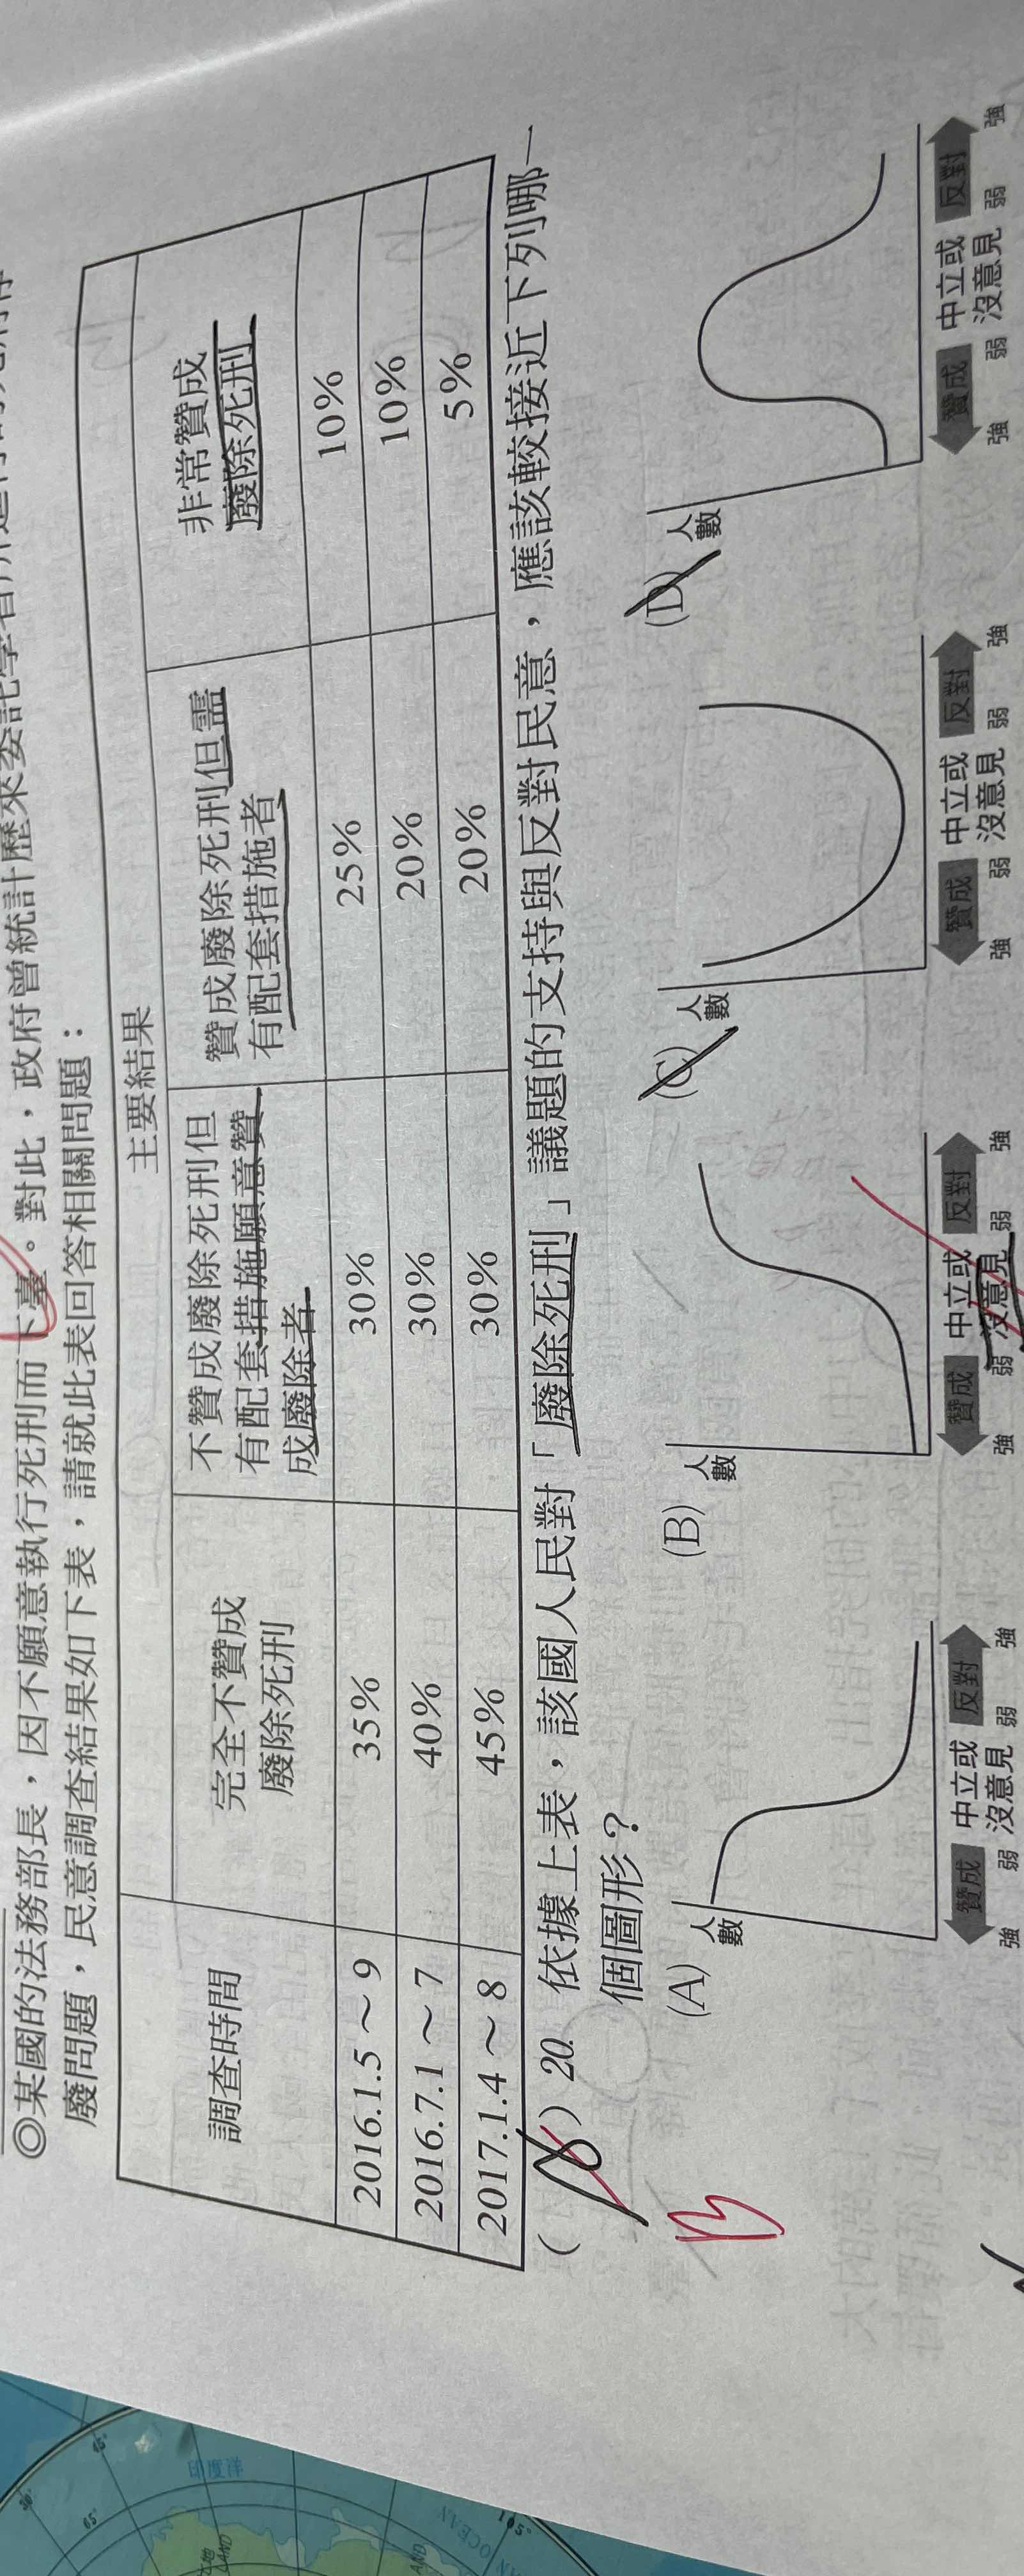 ◎某國的法務部長，因不願意執行死刑而下臺。對此，政府曾統計歷來委託學者所進行的死刑存
廢問題，民意調查結果如下表，請就此表回答相關問題：
主要結果
調查時間
完全不贊成
廢除死刑
不贊成廢除死刑但
有配套措施願意贊
成廢除者
贊成廢除死刑但需
有配套措施者
非常贊成
廢除死刑
2016.1.5～9 35% 30% 25% 10%
2016.7.1～7 40% 30% 20% 10%
2017.1.4～8 45% 30% 20% 5%
（ ）20. 依據上表，該國人民對「廢除死刑」議題的支持與反對民意，應該較接近下列哪一
個圖形？
B
(A)
人數
贊成 中立或沒意見 反對
強 弱 弱 強
(B)
人數
贊成 中立或沒意見 反對
強 弱 弱 強
(C)
人數
贊成 中立或沒意見 反對
強 弱 弱 強
(D)
人數
贊成 中立或沒意見 反對
強 弱 弱 強
印度洋
65°
105°